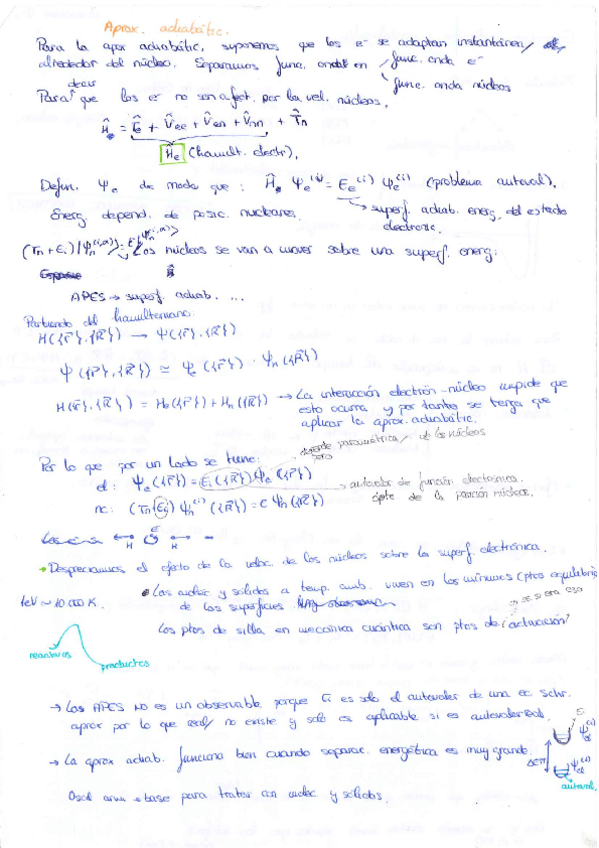 Aprox. adiabátic.
Para la apox adiabátic, suponemos que los e⁻ se adaptan instantánea/
alrededor del núcleo. Separamos func. onda en func. onda e⁻
func. onda núcleos
Para decir que los e⁻ no sean afect. por la vel. núcleos,
Ĥ = T̂e + V̂ee + V̂en + V̂nn + T̂n
Ĥe (hamilt. electr),
Defin. Ψe de modo que: Ĥe Ψe⁽ⁱ⁾ = Ee⁽ⁱ⁾ Ψe⁽ⁱ⁾ (problema autoval).
Energ depend. de posic. nucleares. superf. adiab. energ. del estado
electronic.
Los núcleos se van a mover sobre una superf. energ.
APES → superf. adiab. ...
Partiendo del hamiltoniano:
H({r⃗}, {R⃗}) → Ψ({r⃗}, {R⃗})
Ψ({r⃗}, {R⃗}) ≃ Ψe({r⃗}) · Ψn({R⃗})
H({r⃗}, {R⃗}) = He({r⃗}) + Hn({R⃗}) → La interacción electrón-núcleo impide que
esto ocurra y por tanto se tenga que
aplicar la aprox. adiabátic.
depende paramétrica/ de los núcleos
Por lo que por un lado se tiene:
el: Ψe({r⃗}) = Ei({R⃗}) Ψe({r⃗}) → autovalor de función electrónica
dpte de la posición núcleos.
nc: (Tn + Ei) Ψn⁽ⁱ⁾({R⃗}) = E Ψn({R⃗})
→ Despreciamos el efecto de la veloc. de los núcleos sobre la superf. electrónica.
• Las molec y solidos a temp. amb. viven en los mínimos (ptos equilibrio)
de las superficies
1eV ~ 10 000 K.
Los ptos de silla en mecánica cuántica son ptos de ¿activación?
reactivos
productos
→ Las APES NO es un observable porque Ei es solo el autovalor de una ec. Schr.
aprox por lo que real/ no existe y solo es aplicable si es autovalor real.
→ La aprox adiab. funciona bien cuando separac. energética es muy grande.
autoval.
base para tratar con molec y sólidos.